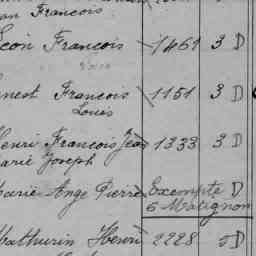 François
François 1461 3 D
François 1151 3 D
Louis
Henri François Jean 1333 3 D
Marie Joseph
Marie Ange Pierre Exempté D
6 Matignon
Mathurin Henri 2228 5 D